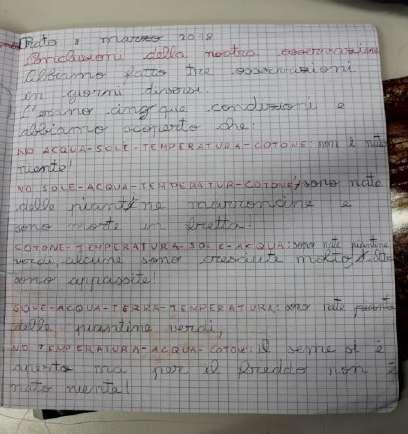 Prato, marzo 2018
Conclusioni della nostra osservazione
Abbiamo fatto tre osservazioni
in giorni diversi.
C'erano cinque condizioni e
abbiamo scoperto che:
NO ACQUA-SOLE-TEMPERATURA-COTONE: non è nato
niente!
NO SOLE-ACQUA-TEMPERATUR-COTONE: sono nate
delle piantine marroncine e
sono morte in fretta.
COTONE-TEMPERATURA-SOLE-ACQUA: sono nate piantine
verdi, alcune sono cresciute molto,
sono appassite!
SOLE-ACQUA-TERRA-TEMPERATURA: sono nate
delle piantine verdi,
NO TEMPERATURA-ACQUA-COTONE: il seme si è
aperto ma per il freddo non è
nato niente!